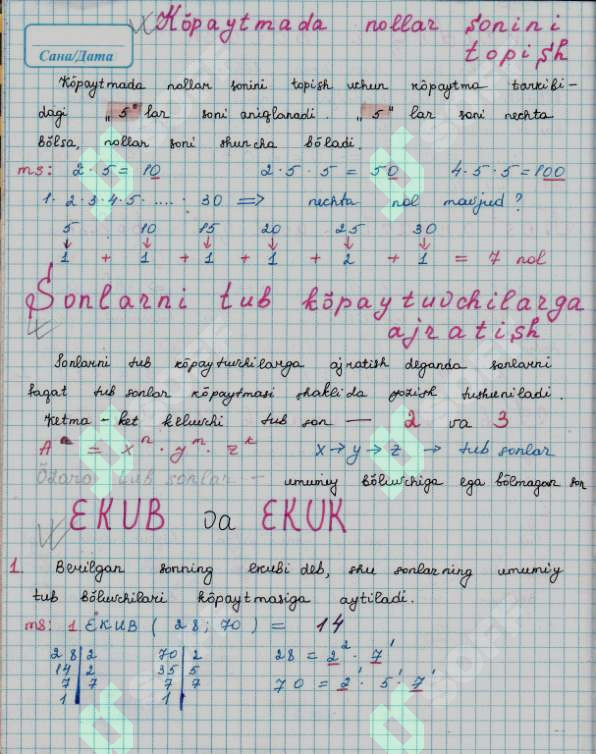 Kŏpaytmada nollar sonini
topish
Сана/Дата
Kŏpaytmada nollar sonini topish uchun kŏpaytma tarkibi-
dagi „5" lar soni aniqlanadi. „5" lar soni nechta
bŏlsa, nollar soni shuncha bŏladi.
ms: 2·5 = 10 2·5·5 = 50 4·5·5 = 100
1·2·3·4·5·....·30 => nechta nol mavjud?
5 10 15 20 25 30
↓ ↓ ↓ ↓ ↓ ↓
1 + 1 + 1 + 1 + 2 + 1 = 7 nol
Sonlarni tub kŏpaytuvchilarga
ajratish
Sonlarni tub kŏpaytuvchilarga ajratish deganda sonlarni
faqat tub sonlar kŏpaytmasi shaklida yozish tushuniladi.
Ketma-ket keluvchi tub son — 2 va 3
x→y→z → tub sonlar
Ŏzaro tub sonlar — umumiy bŏluvchiga ega bŏlmagan son
EKUB va EKUK
1. Berilgan sonning ekubi deb, shu sonlarning umumiy
tub bŏluvchilari kŏpaytmasiga aytiladi.
ms: 1 EKUB (28; 70) = 14
28 | 2 70 | 2 28 = 2² · 7¹
14 | 2 35 | 5
7 | 7 7 | 7 70 = 2¹ · 5¹ · 7¹
1 1
SOFF